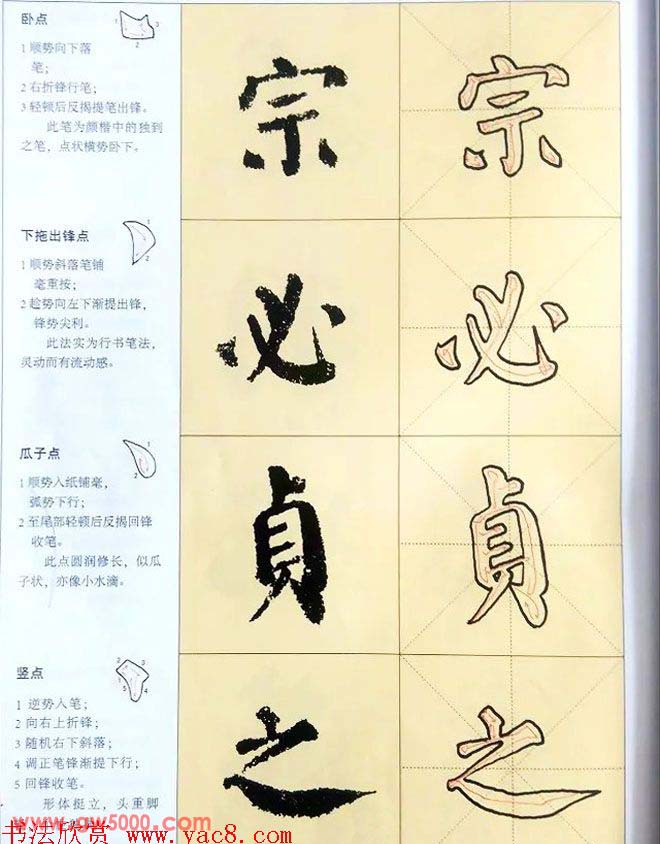 卧点
1 顺势向下落
笔;
2 右折锋行笔;
3 轻顿后反揭提笔出锋。
此笔为颜楷中的独到
之笔，点状横势卧下。
宗
宗
下拖出锋点
1 顺势斜落笔铺
毫重按;
2 趁势向左下渐提出锋，
锋势尖利。
此法实为行书笔法，
灵动而有流动感。
必
必
瓜子点
1 顺势入纸铺毫，
弧势下行;
2 至尾部轻顿后反揭回锋
收笔。
此点圆润修长，似瓜
子状，亦像小水滴。
貞
貞
竖点
1 逆势入笔;
2 向右上折锋;
3 随机右下斜落;
4 调正笔锋渐提下行;
5 回锋收笔。
形体挺立，头重脚
之
之
www.gw5000.com
书法欣赏 www.yac8.com